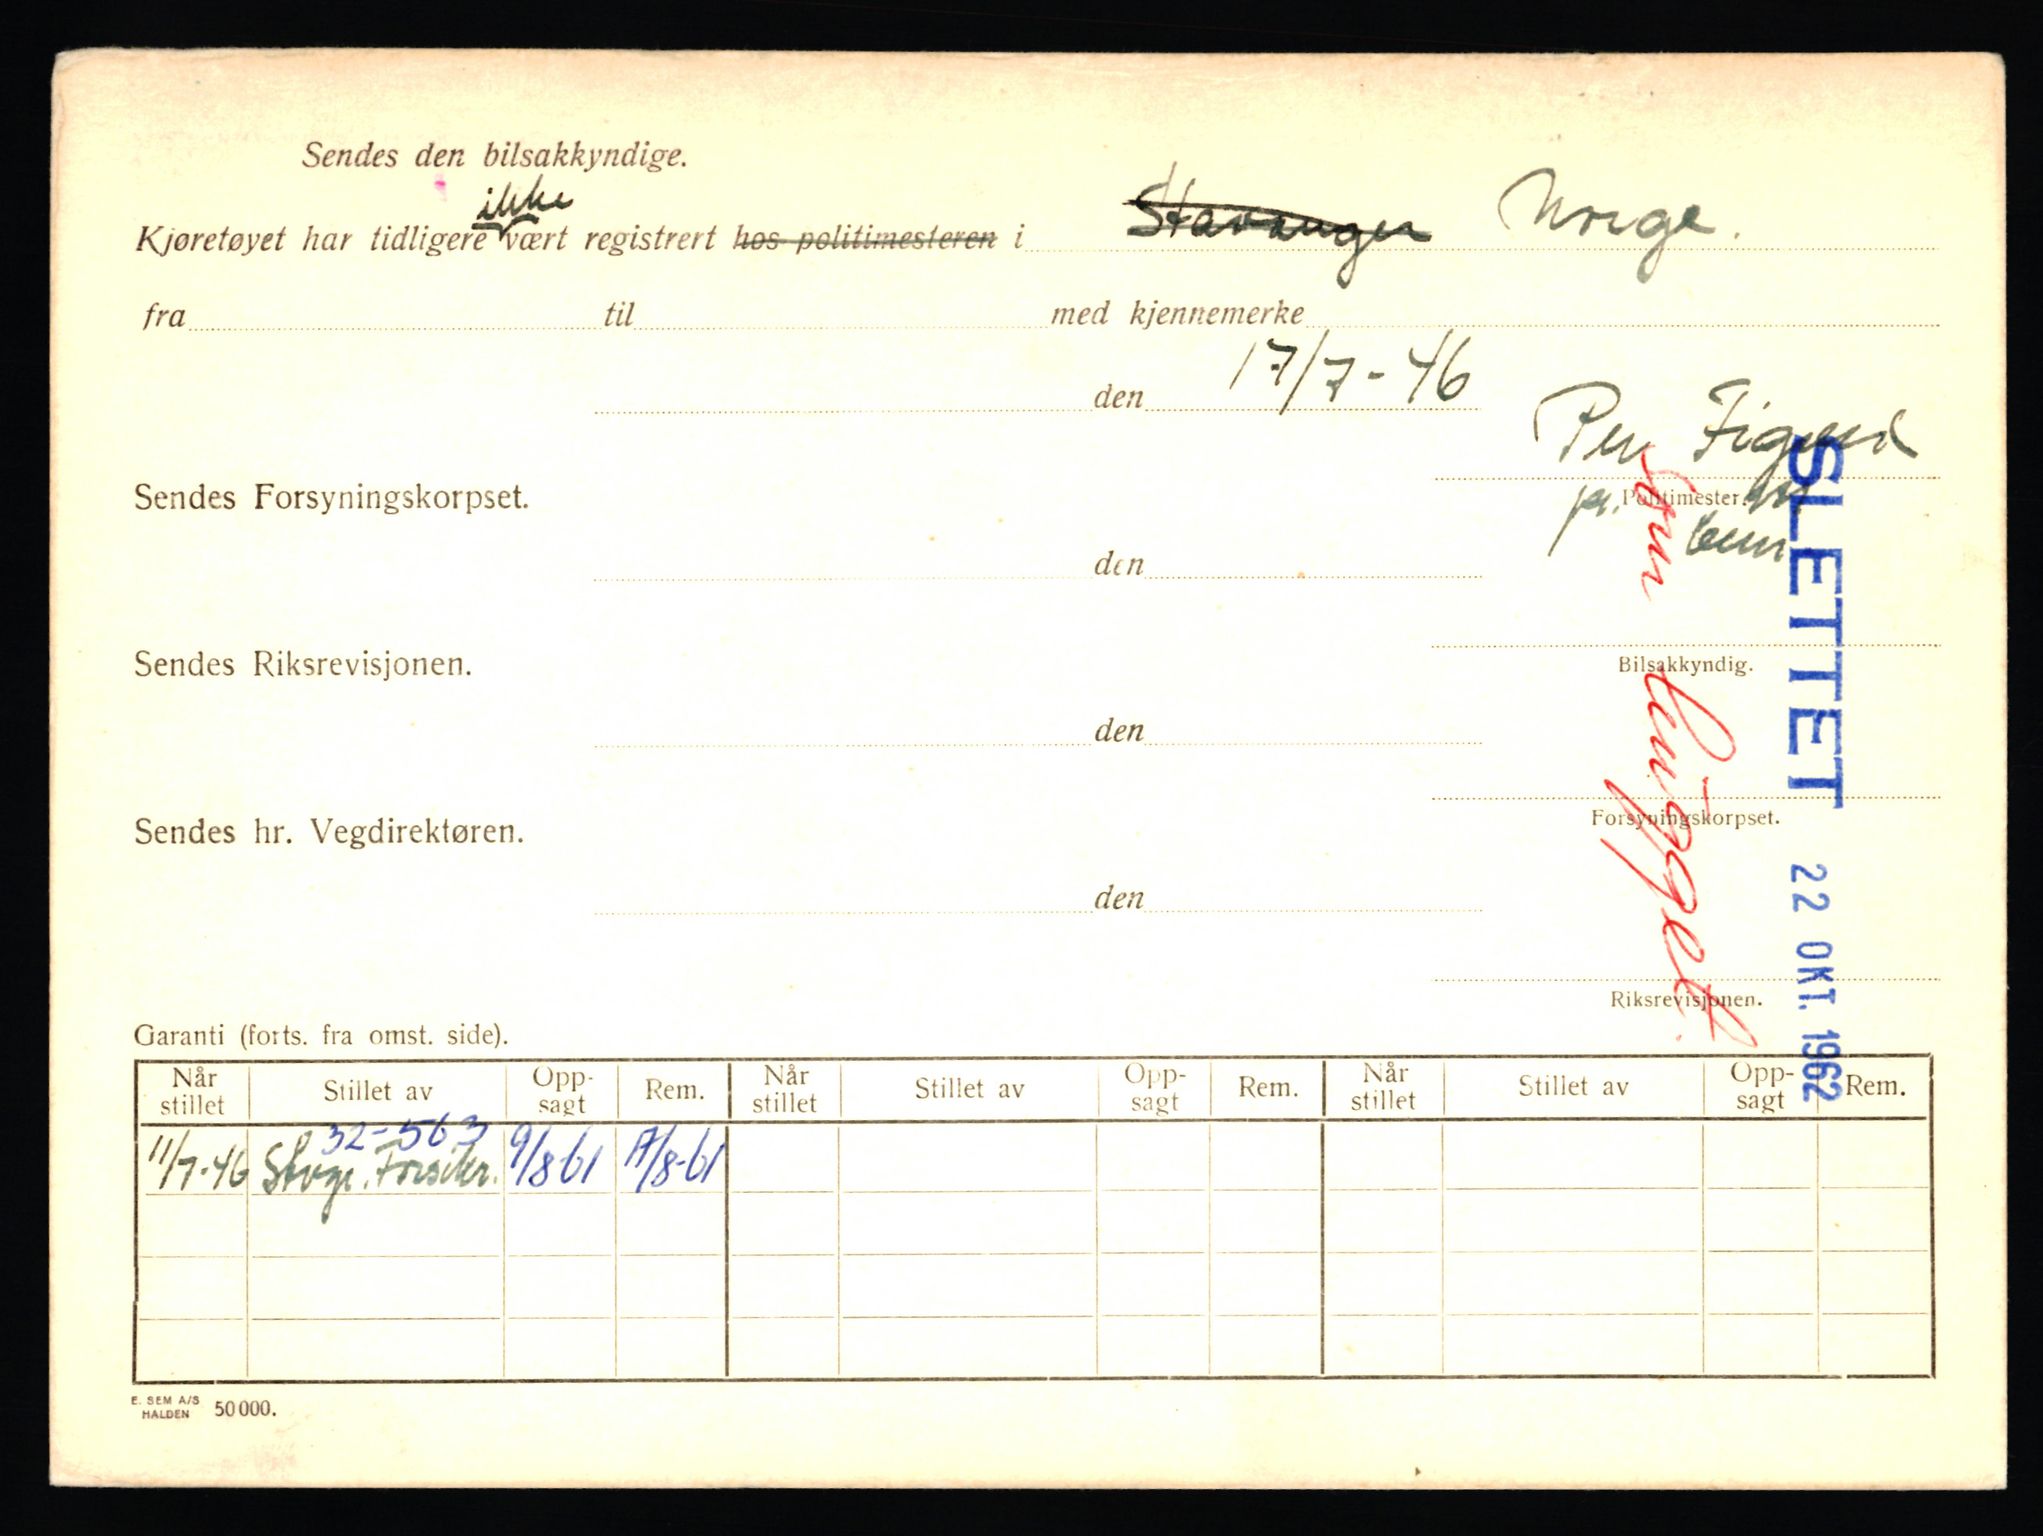 Sendes den bilsakkyndige.
ikke
Kjøretøyet har tidligere vært registrert hos politimesteren i Stavanger Norge.
fra til med kjennemerke
den 17/7-46
Per
Sendes Forsyningskorpset.
Politimester.
den
Sendes Riksrevisjonen.
Bilsakkyndig.
den
Sendes hr. Vegdirektøren.
Forsyningskorpset.
den
Riksrevisjonen.
som
SLETTET 22 OKT. 1962
Garanti (forts. fra omst. side).
Når stillet Stillet av Opp- sagt Rem. Når stillet Stillet av Opp- sagt Rem. Når stillet Stillet av Opp- sagt Rem.
32-563
11/7-46 Stvgr. Forsikr. 9/8-61 17/8-61
E. SEM A/S
HALDEN 50 000.